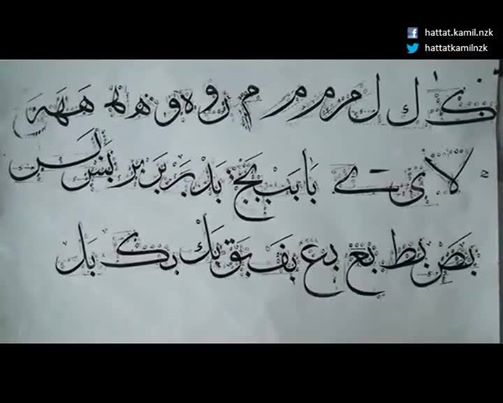 hattat.kamil.nzk
hattatkamilnzk
ک ك ل م م م م و ه و ههه
لا ی ے با بب بج بد بر بس
بص بط بع بع بف بق بك بک بل